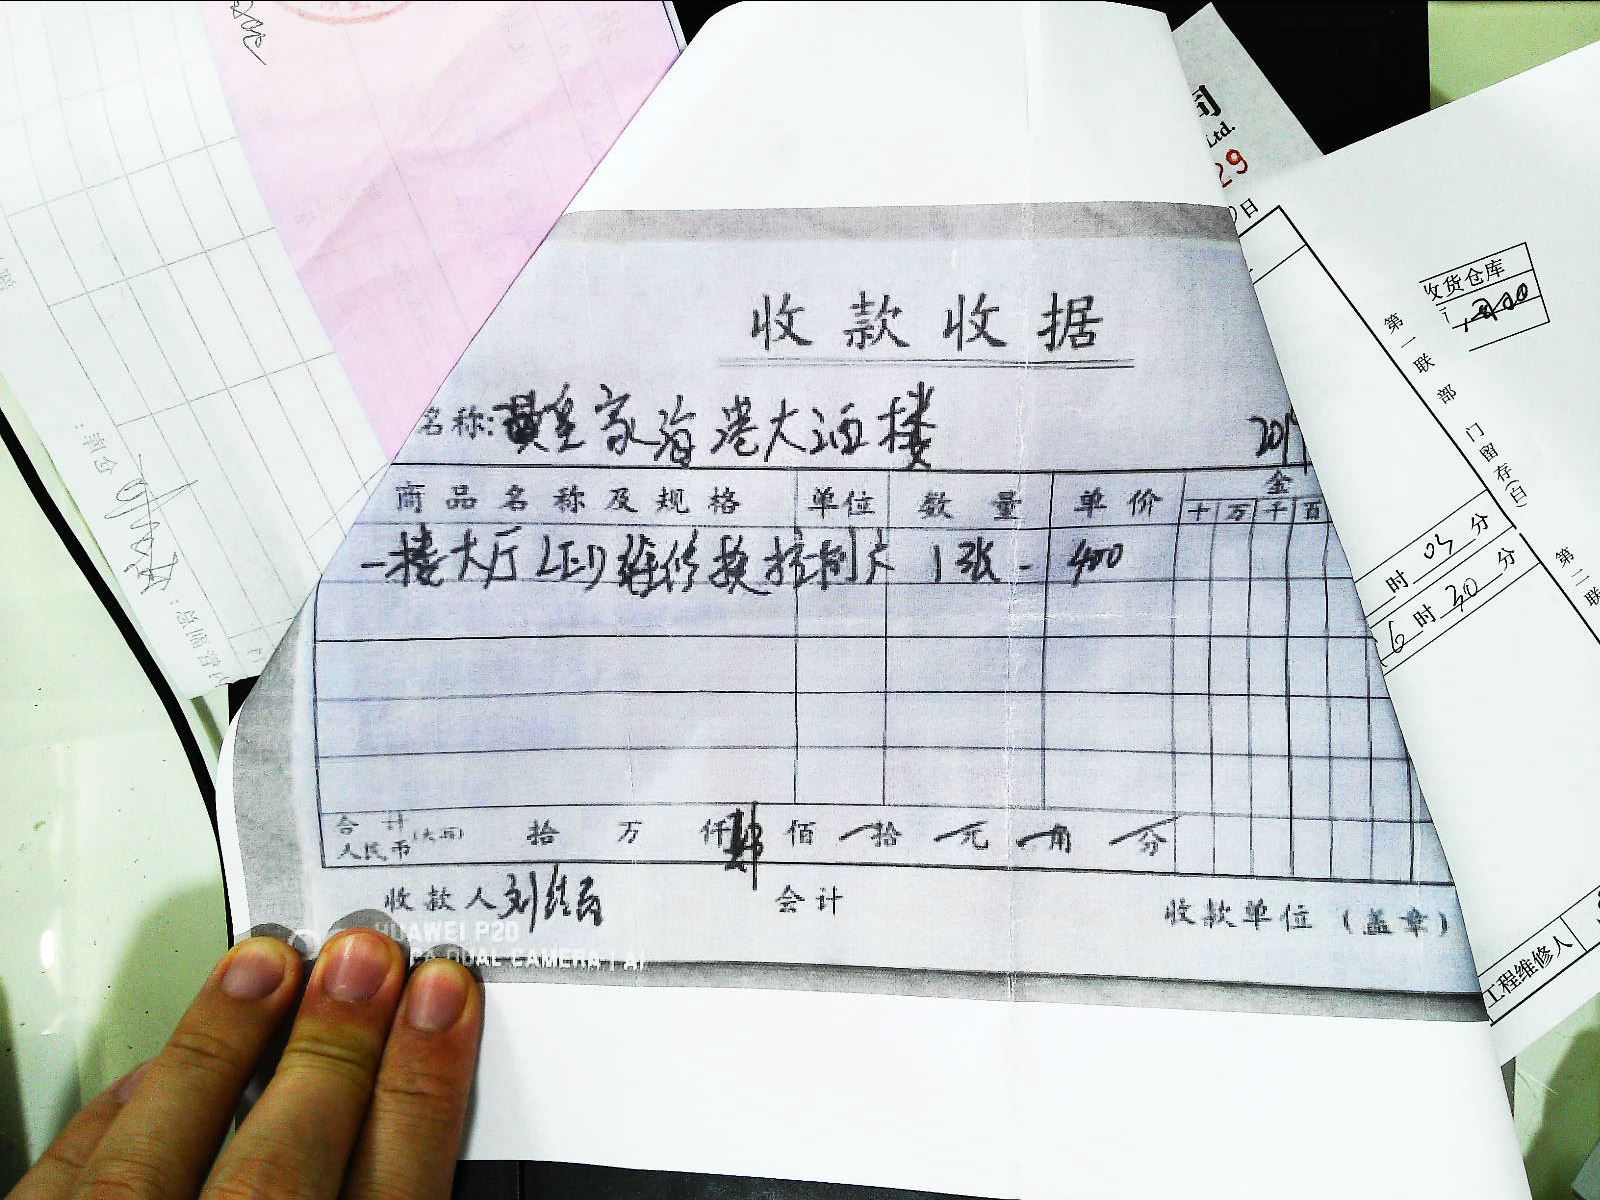 收款收据
名称: 皇家海港大酒楼
201
商品名称及规格 单位 数量 单价 金
十 万 千 百
一楼大厅LED维修换控制卡 1张 - 400
合计
人民币(大写) 拾 万 仟 肆 佰 拾 元 角 分
收款人 刘
会计
收款单位(盖章)
HUAWEI P20
DUAL CAMERA | AI
司
Ltd.
29
日
收货仓库
第一联 部门留存(白)
时 03 分
6 时 30 分
第二联
工程维修人